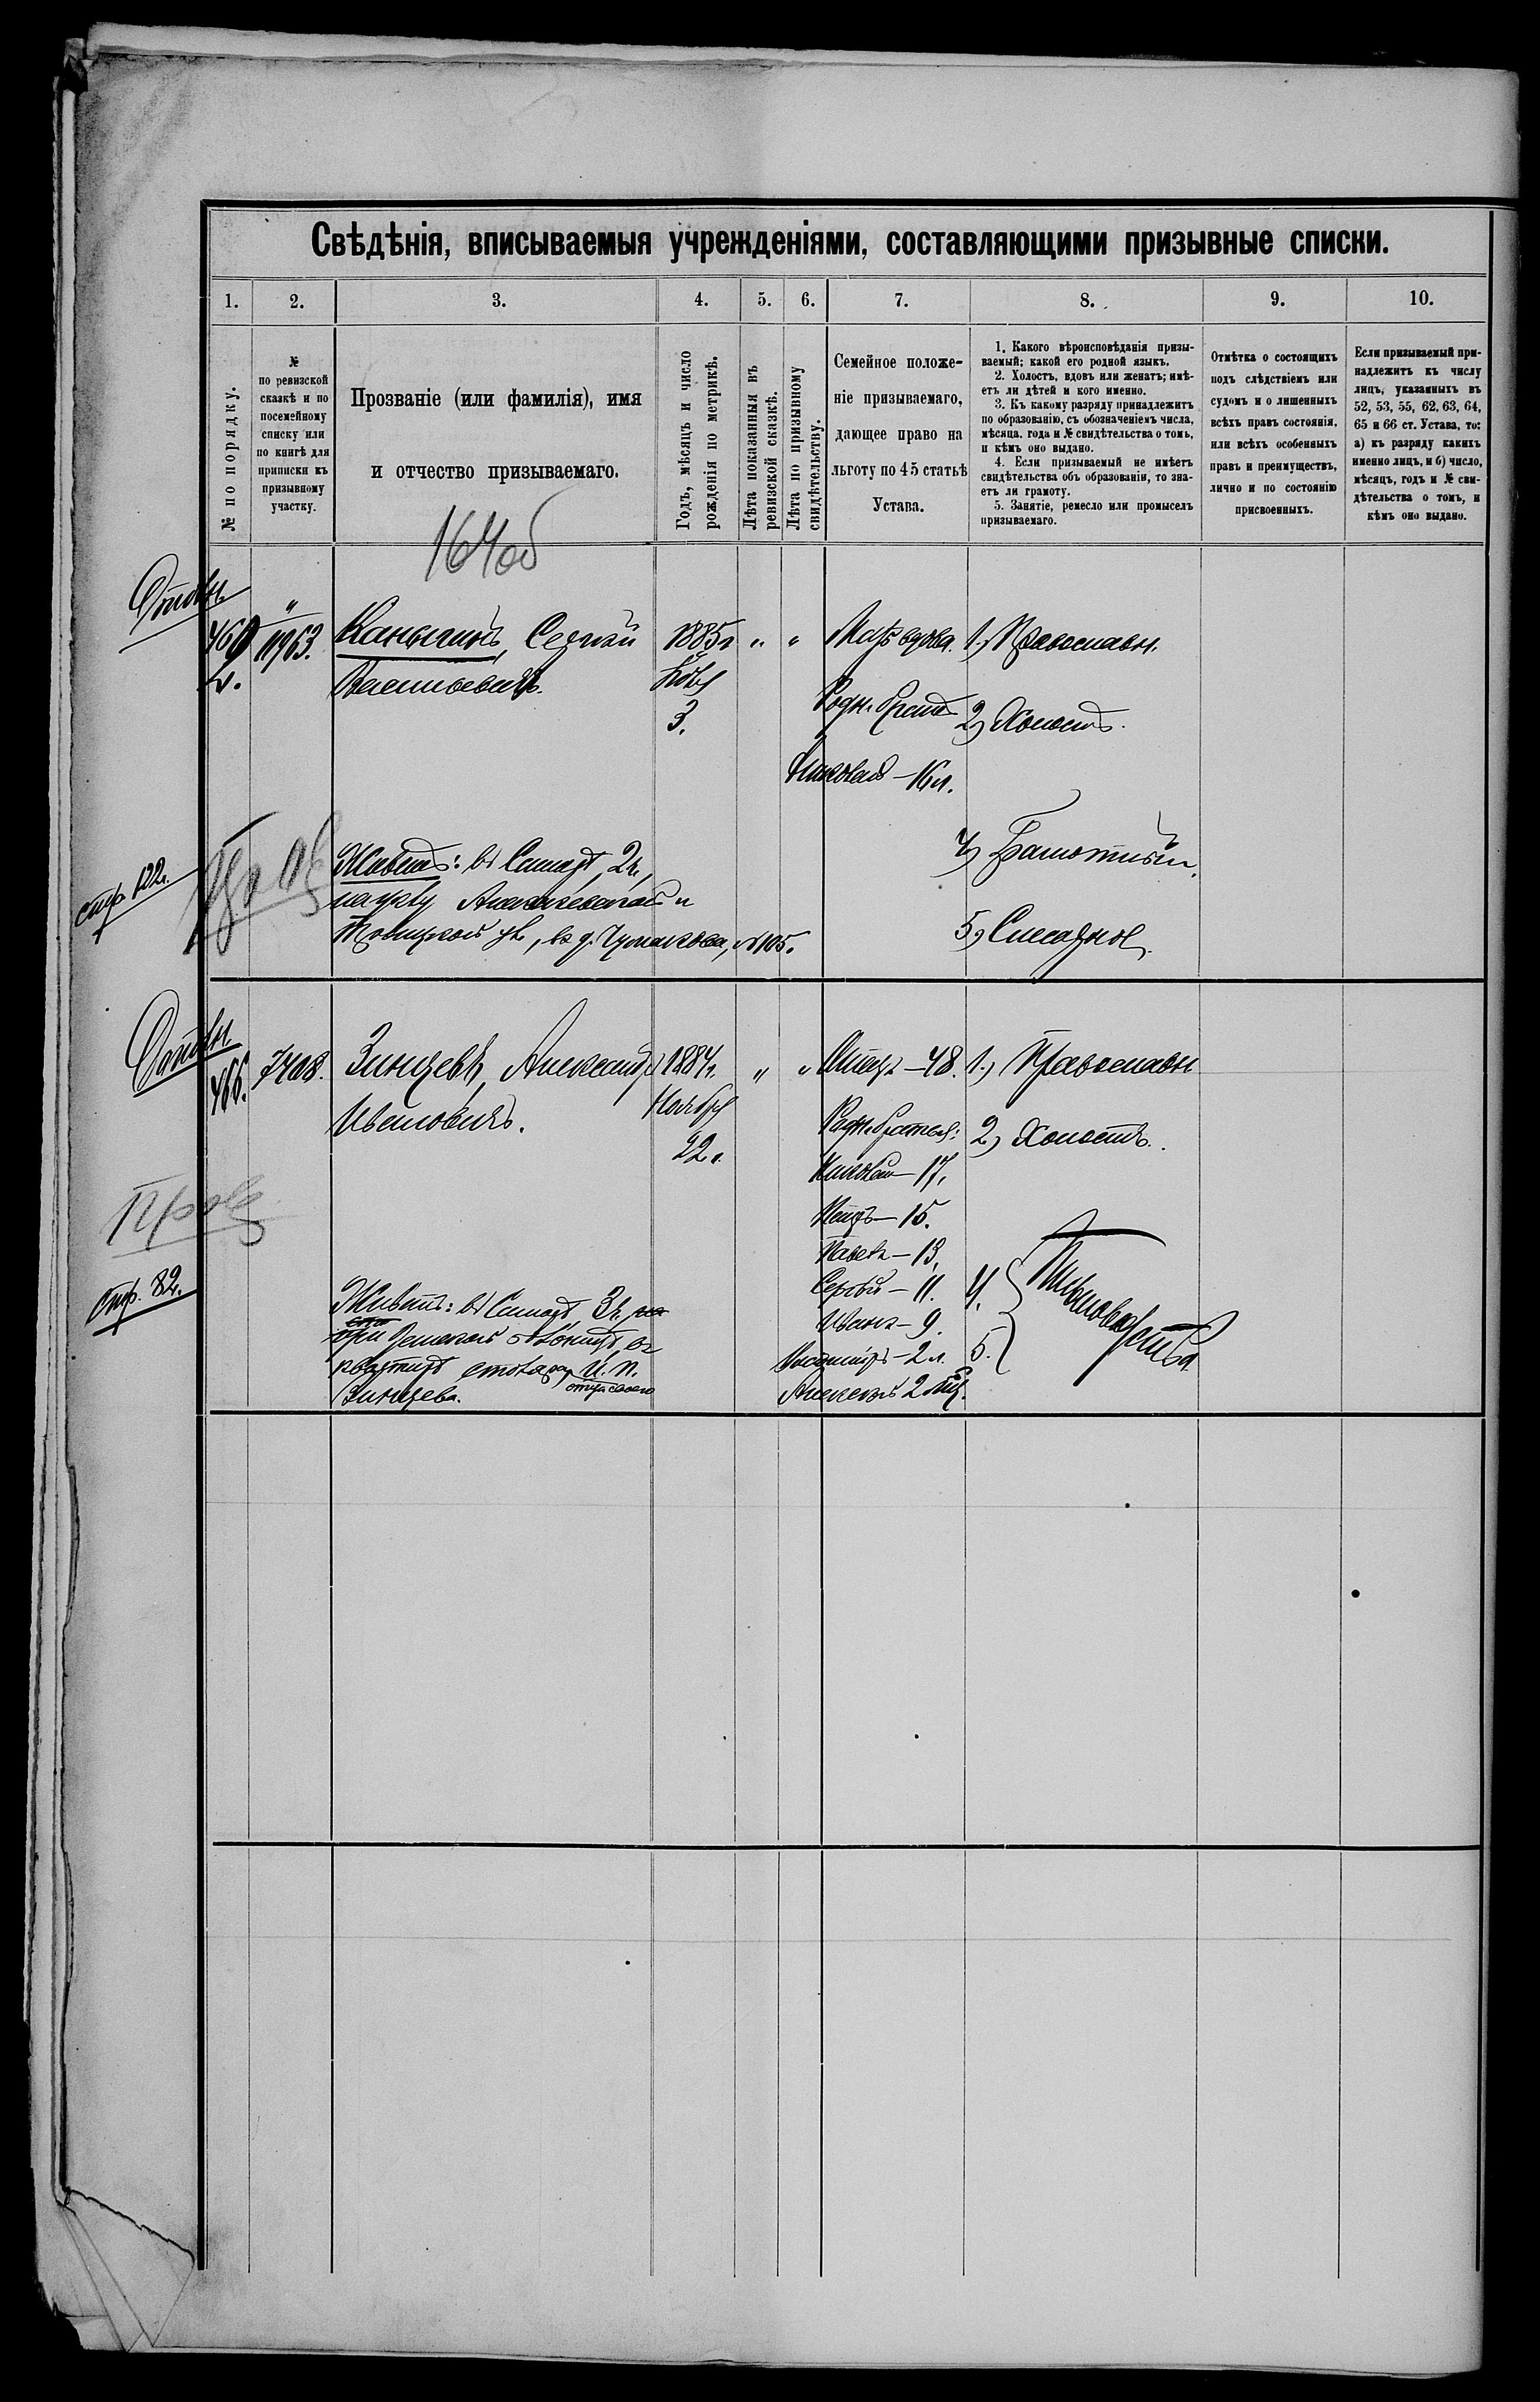 Свѣдѣнія, вписываемыя учрежденіями, составляющими призывные списки.
1.
2.
3.
4.
5.
6.
7.
8.
9.
10.
№ по порядку.
№
по ревизской
сказкѣ и по
посемейному
списку или
по книгѣ для
приписки къ
призывному
участку.
Прозваніе (или фамилія), имя
и отчество призываемаго.
Годъ, мѣсяцъ и число
рожденія по метрикѣ.
Лѣта показанныя въ
ревизской сказкѣ.
Лѣта по призывному
свидѣтельству.
Семейное положе-
ніе призываемаго,
дающее право на
льготу по 45 статьѣ
Устава.
1. Какого вѣроисповѣданія призы-
ваемый; какой его родной языкъ.
2. Холостъ, вдовъ или женатъ; имѣ-
етъ ли дѣтей и кого именно.
3. Къ какому разряду принадлежитъ
по образованію, съ обозначеніемъ числа,
мѣсяца, года и № свидѣтельства о томъ,
и кѣмъ оно выдано.
4. Если призываемый не имѣетъ
свидѣтельства объ образованіи, то зна-
етъ ли грамоту.
5. Занятіе, ремесло или промыселъ
призываемаго.
Отмѣтка о состоящихъ
подъ слѣдствіемъ или
судомъ и о лишенныхъ
всѣхъ правъ состоянія,
или всѣхъ особенныхъ
правъ и преимуществъ,
лично и по состоянію
присвоенныхъ.
Если призываемый при-
надлежитъ къ числу
лицъ, указанныхъ въ
52, 53, 55, 62, 63, 64,
65 и 66 ст. Устава, то:
а) къ разряду какихъ
именно лицъ, и б) число,
мѣсяцъ, годъ и № сви-
дѣтельства о томъ, и
кѣмъ оно выдано.
164об
469
11963.
Каныгинъ, Сергѣй
Васильевичъ.
1885г.
3.
" "
Мать вдова.
Родн. братъ
Николай – 16 л.
1, Православн.
2, Холостъ.
4, Грамотный.
5, Слесарное.
стр. 122.
Живетъ: въ Самарѣ, 2ч,
на углу Алексѣевской и
Троицкой ул., въ д. Чумакова, №105.
466.
7408.
Зинцевъ, Александръ
Ивановичъ.
1884г.
Ноября
22.
" "
Отецъ – 48.
Родн. братья:
Николай – 17,
Петръ – 15.
Павелъ – 13,
Сергѣй – 11.
Иванъ – 9.
Владиміръ – 2 л.
Алексѣй 2 мѣс.
1, Православн
2, Холостъ.
4.
5.
Пров
стр. 82.
Живетъ: въ Самарѣ, 3ч,
при Земской больницѣ, въ
квартирѣ столяра И. П.
отца своего
Зинцева.